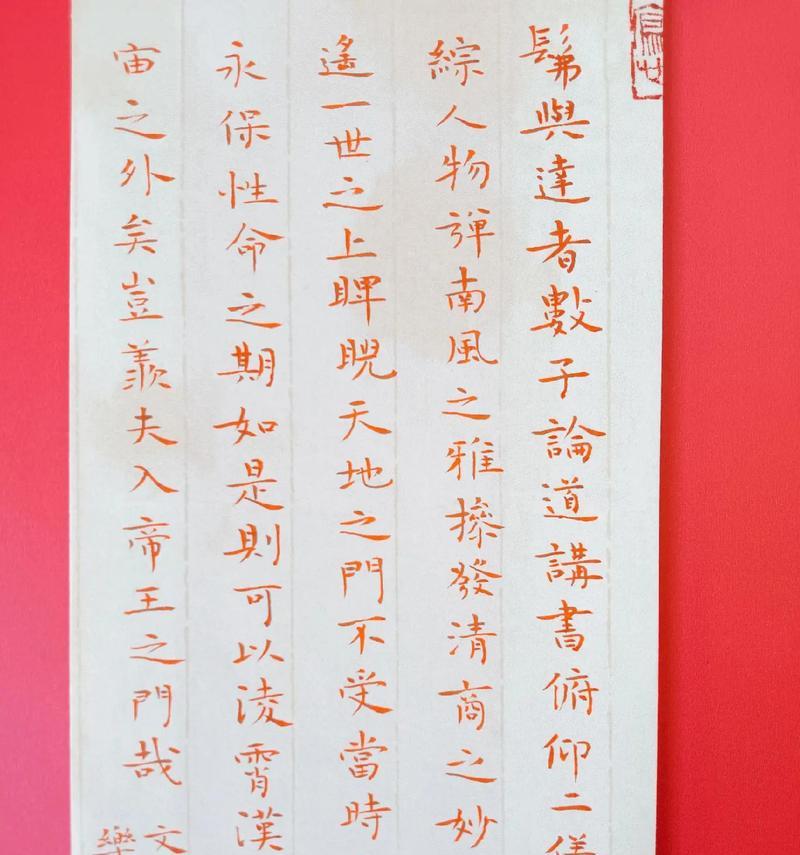 髴與達者數子論道講書俯仰二
綜人物彈南風之雅操發清商之妙
遙一世之上睥睨天地之門不受當時
永保性命之期如是則可以淩霄漢
宙之外矣豈羨夫入帝王之門哉
文
樂